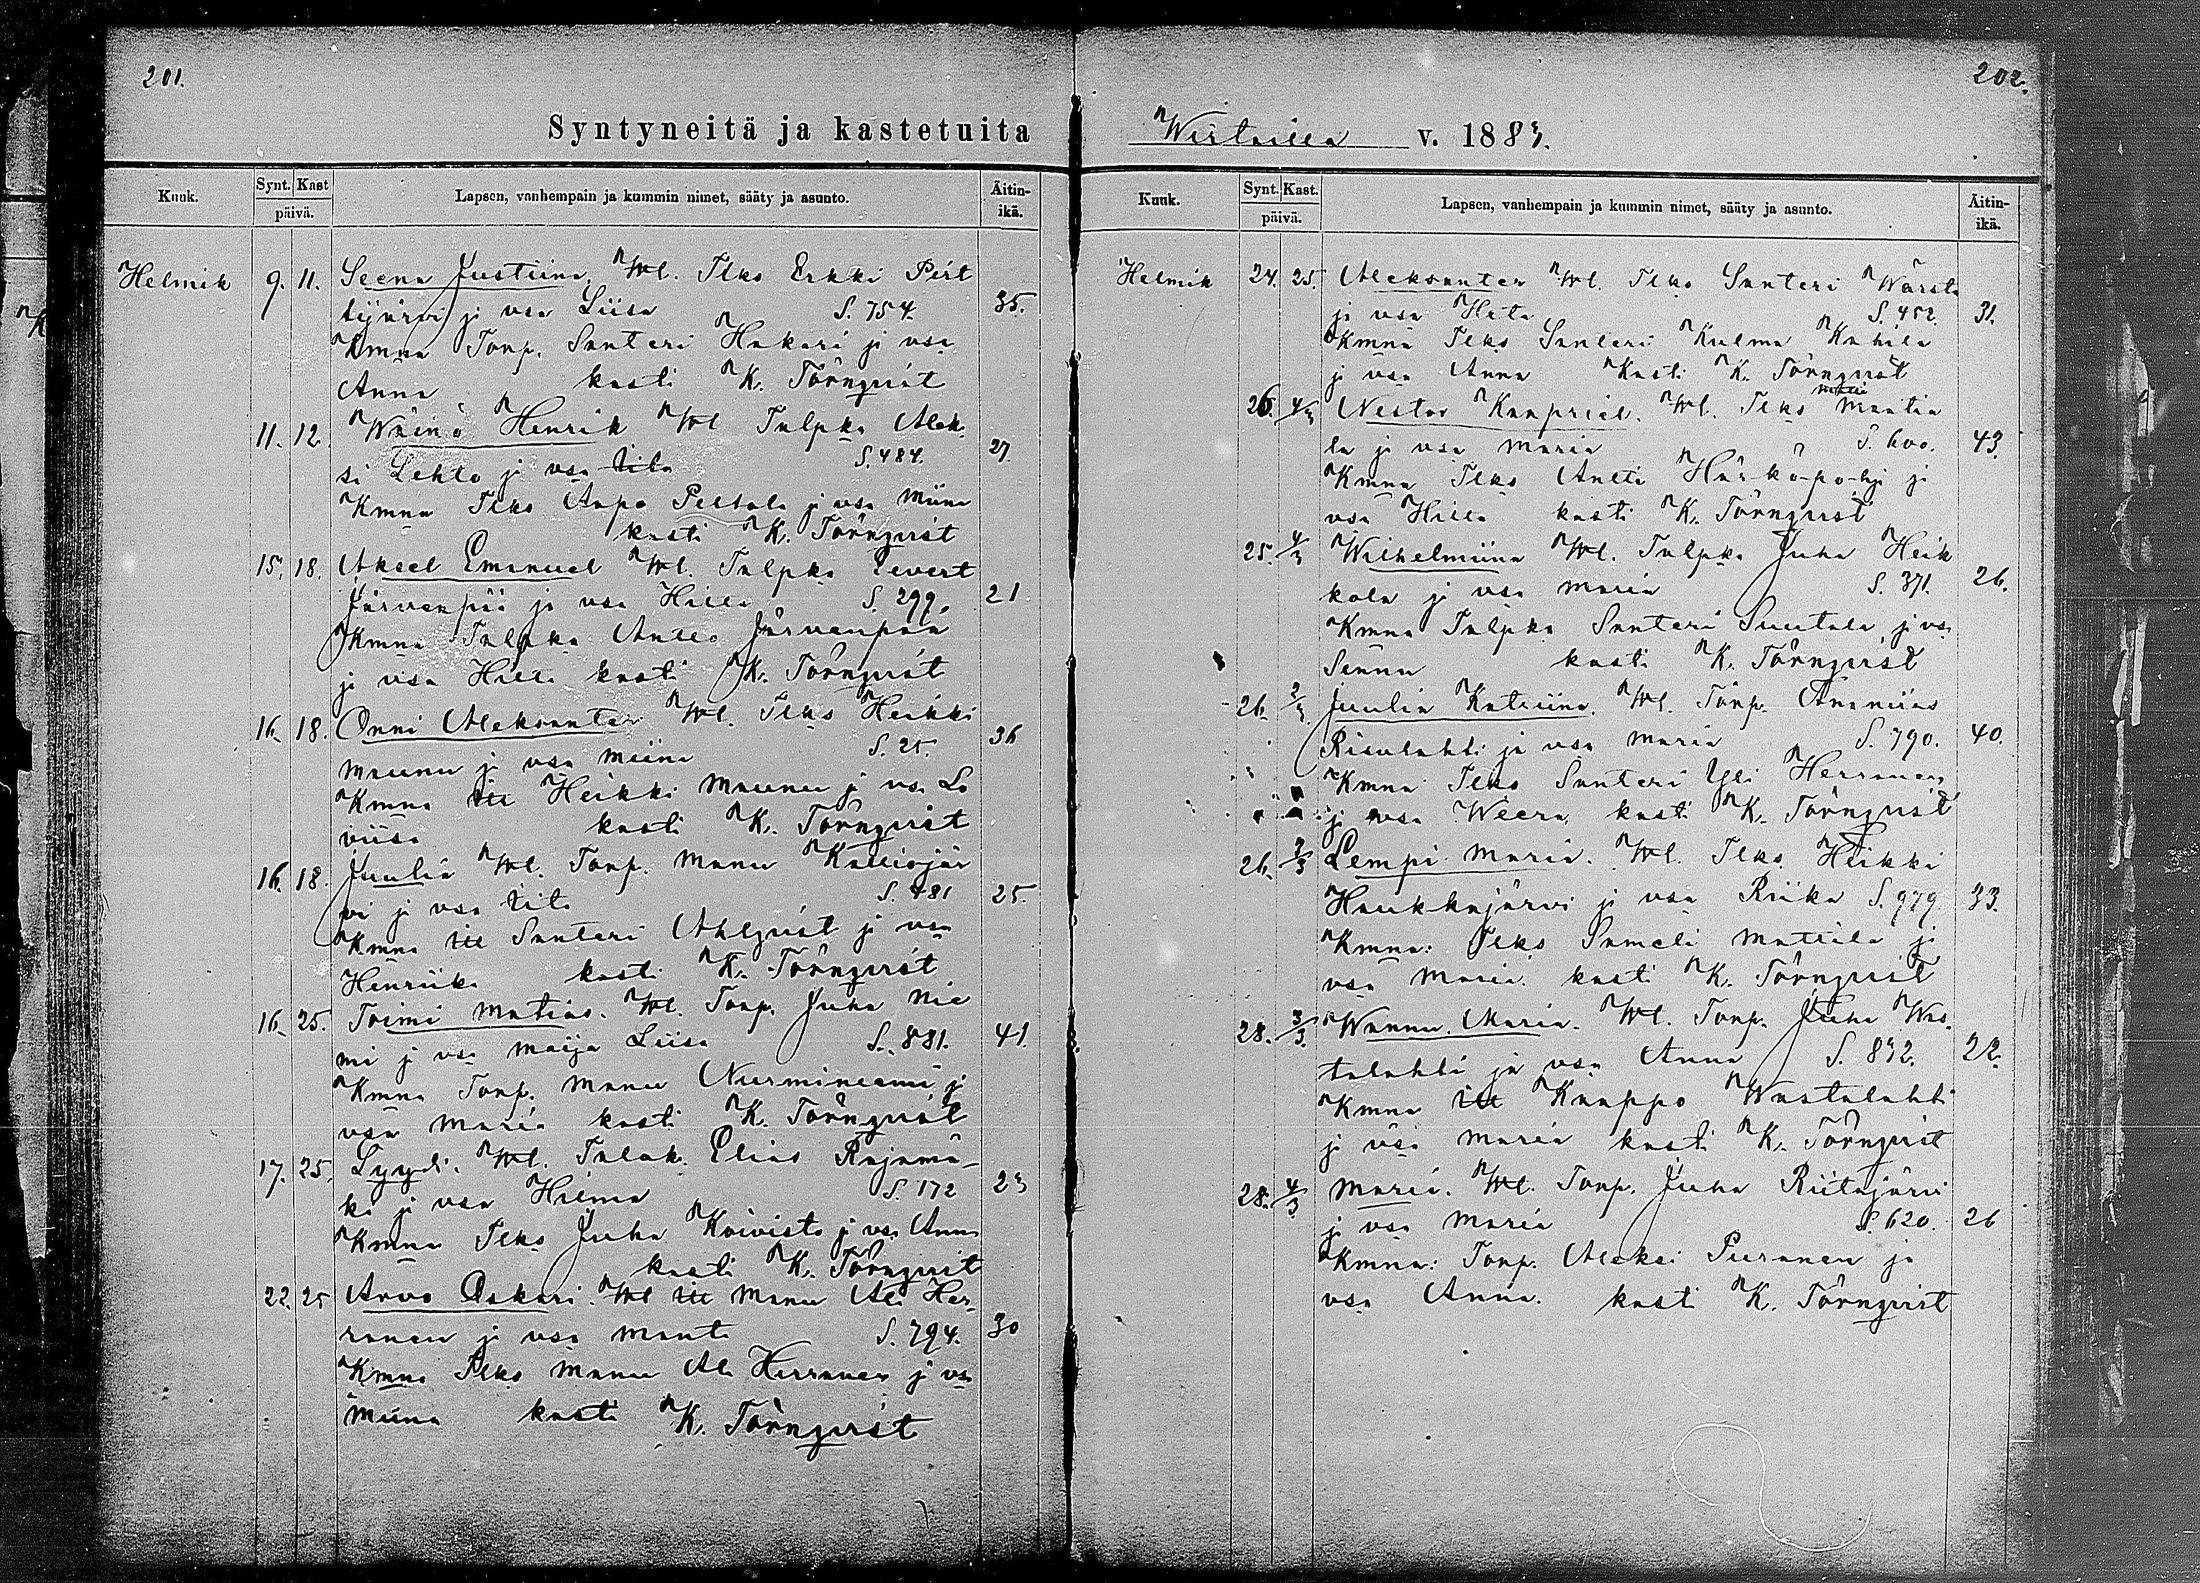 201.
Syntyneitä ja kastetuita
Kuuk. Synt. Kast päivä. Lapsen, vanhempain ja kummin nimet, sääty ja asunto. Äitin-ikä.
Helmik 9. 11. Seena Justiina, Wl. Tlks Erkki Pert
tijärvi ja vsa Liisa S. 754. 35.
Kmna Torp. Santeri Hakari ja vsa
Anna kasti K. Törnqvist
11. 12. Wäinö Henrik Wl Talpka Alek-
si Lehto ja vsa Tilta S. 484. 27.
Kmna Tlks Aapo Peltola ja vsa Miina
kasti K. Törnqvist
15. 18. Aksel Emanuel Wl. Talpka Eevert
Järvenpää ja vsa Hilla S. 299. 21
Kmna Talpka Antto Järvenpää
ja vsa Hilta kasti K. Törnqvist
16. 18. Onni Aleksanter Wl. Tlks Heikki
Maunu ja vsa Miina S. 25. 36
Kmna itl Heikki Maunu ja vsa Lo
viisa kasti K. Törnqvist
16. 18. Juulia Wl. Torp. Manu Kalliojär
vi ja vsa Tilta S. 481 25.
Kmna itl Santeri Ahlqvist ja vsa
Henriika kasti K. Törnqvist
16. 25. Toimi Matias. Wl. Torp. Juha Nie
mi ja vsa Maija Liisa S. 881. 41.
Kmna Torp. Manu Nurmineemi ja
vsa Maria kasti K. Törnqvist
17. 25. Lyydi. Wl. Talok. Elias Rajamä-
ki ja vsa Hilma S. 172 23
Kmna Tlks Juha Koivisto ja vsa Anna
kasti K. Törnqvist
22. 25 Arvo Oskari. Wl itl Manu Ali Her-
ranen ja vsa Manta S. 794. 30
Kmna Tlks Manu Ali Herranen ja vsa
Miina kasti K. Törnqvist
202.
Wirtailla v. 1883.
Kuuk. Synt. Kast. päivä. Lapsen, vanhempain ja kummin nimet, sääty ja asunto. Äitin-ikä.
Helmik 24. 25. Aleksanter Wl. Tlks Santeri Wärst
ja vsa Heta S. 452. 31.
Kmna Tlks Santeri Kulma Kahila
ja vsa Anna Kasti K. Törnqvist
26. 4/3 Nestor Kaapriel. Wl. Tlks Matti Mantia
la ja vsa Maria S. 600. 43.
Kmna Tlks Antti Härköpohja ja
vsa Hilla kasti K. Törnqvist
25. 4/3 Wilhelmiina Wl. Talpka Juha Heik
kola ja vsa Maria S. 371. 26.
Kmna Talpka Santeri Suutala ja vsa
Senna kasti K. Törnqvist
26. 2/3 Juulia Katriina. Wl. Torp. Ananiias
Risulahti ja vsa Maria S. 790. 40.
Kmna Tlks Santeri Yli Herranen
ja vsa Weera kasti K. Törnqvist
26. 3/3 Lempi Maria. Wl. Tlks Heikki
Haukkajärvi ja vsa Riika S. 979 33.
Kmna: Tlks Sameli Mattila ja
vsa Maria. kasti K. Törnqvist
28. 3/3. Wannu Maria. Wl. Torp. Juha Was-
talahti ja vsa Anna S. 832. 22.
Kmna itl Kaappo Wastalahti
ja vsa Maria kasti K. Törnqvist
28. 4/3 Maria. Wl. Torp. Juha Riitajärvi
ja vsa Maria S. 620. 26
Kmna: Torp. Aleksi Puranen ja
vsa Anna. kasti K. Törnqvist